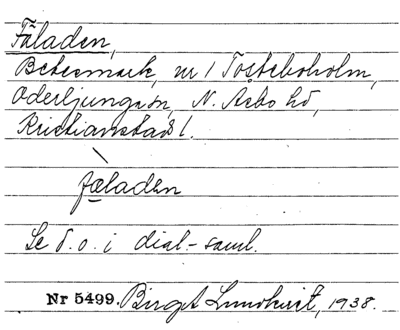 Fäladen,
Betesmark, nr 1 Tosteboholm,
Oderljunga sn, N. Åsbo hd,
Kristianstads l.
fæladen
Se d. o. i dial-saml.
Nr 5499. Birgit Lundkvist, 1938.